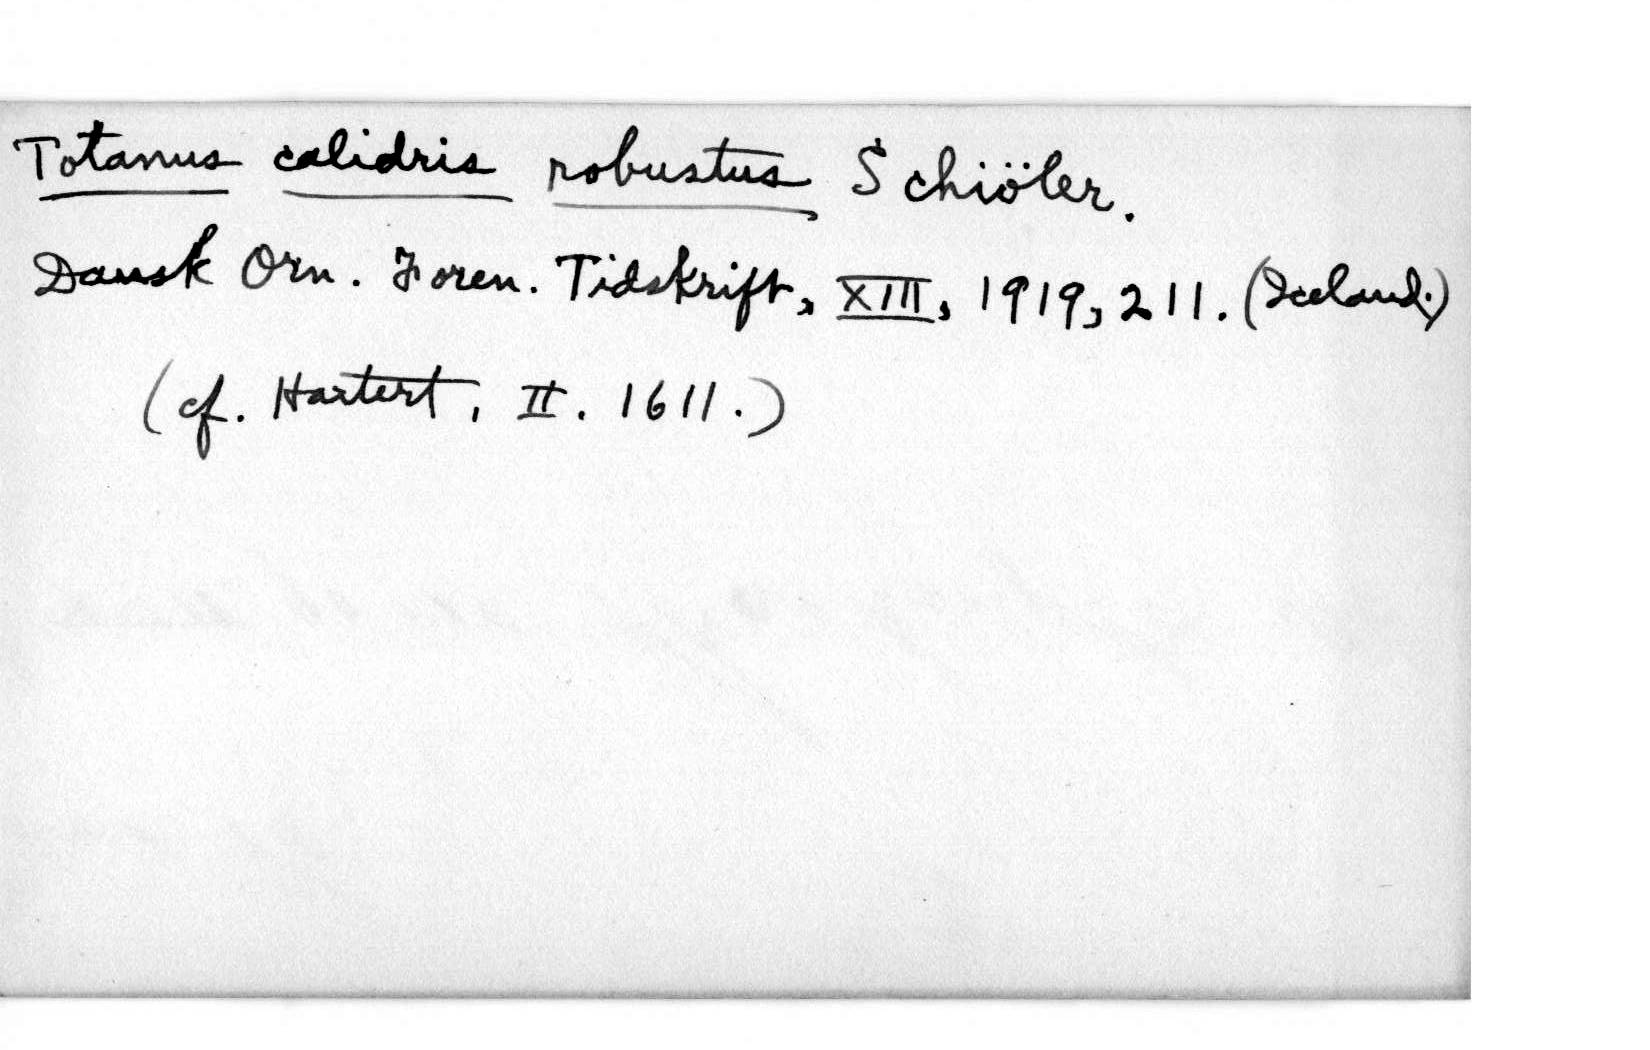 Totanus calidris robustus Schiöler.
Dansk Orn. Foren. Tidskrift, XIII, 1919, 211. (Iceland.)
(cf. Hartert, II. 1611.)